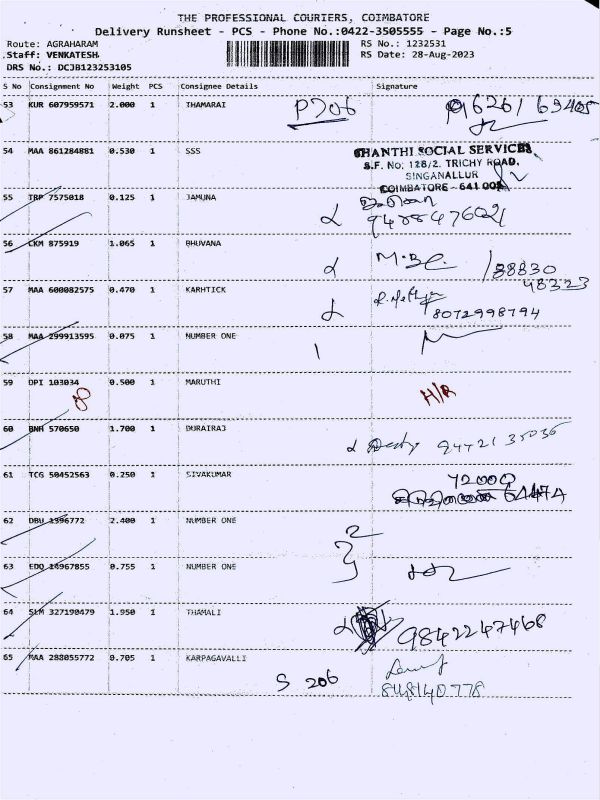 THE PROFESSIONAL COURIERS, COIMBATORE
Delivery Runsheet - PCS - Phone No.:0422-3505555 - Page No.:5
Route: AGRAHARAM RS No.: 1232531
Staff: VENKATESH RS Date: 28-Aug-2023
DRS No.: DCJB123253105
S No Consignment No Weight PCS Consignee Details Signature
53 KUR 607959571 2.000 1 THAMARAI P206
54 MAA 861284881 0.530 1 SSS SHANTHI SOCIAL SERVICES
S.F. No: 128/2, TRICHY ROAD,
SINGANALLUR
COIMBATORE - 641 005
55 TRP 7575018 0.125 1 JAMUNA
56 CKM 875919 1.065 1 BHUVANA
57 MAA 600082575 0.470 1 KARHTICK
8072998794
58 MAA 299913595 0.075 1 NUMBER ONE
59 DPI 103034 0.500 1 MARUTHI H/R
60 BNH 570650 1.700 1 DURAIRAJ
61 TCG 50452563 0.250 1 SIVAKUMAR
62 DBU 1396772 2.400 1 NUMBER ONE
63 EDQ 14967855 0.755 1 NUMBER ONE
64 SLM 327190479 1.950 1 THAMALI
9842247468
65 MAA 288055772 0.705 1 KARPAGAVALLI
S 206